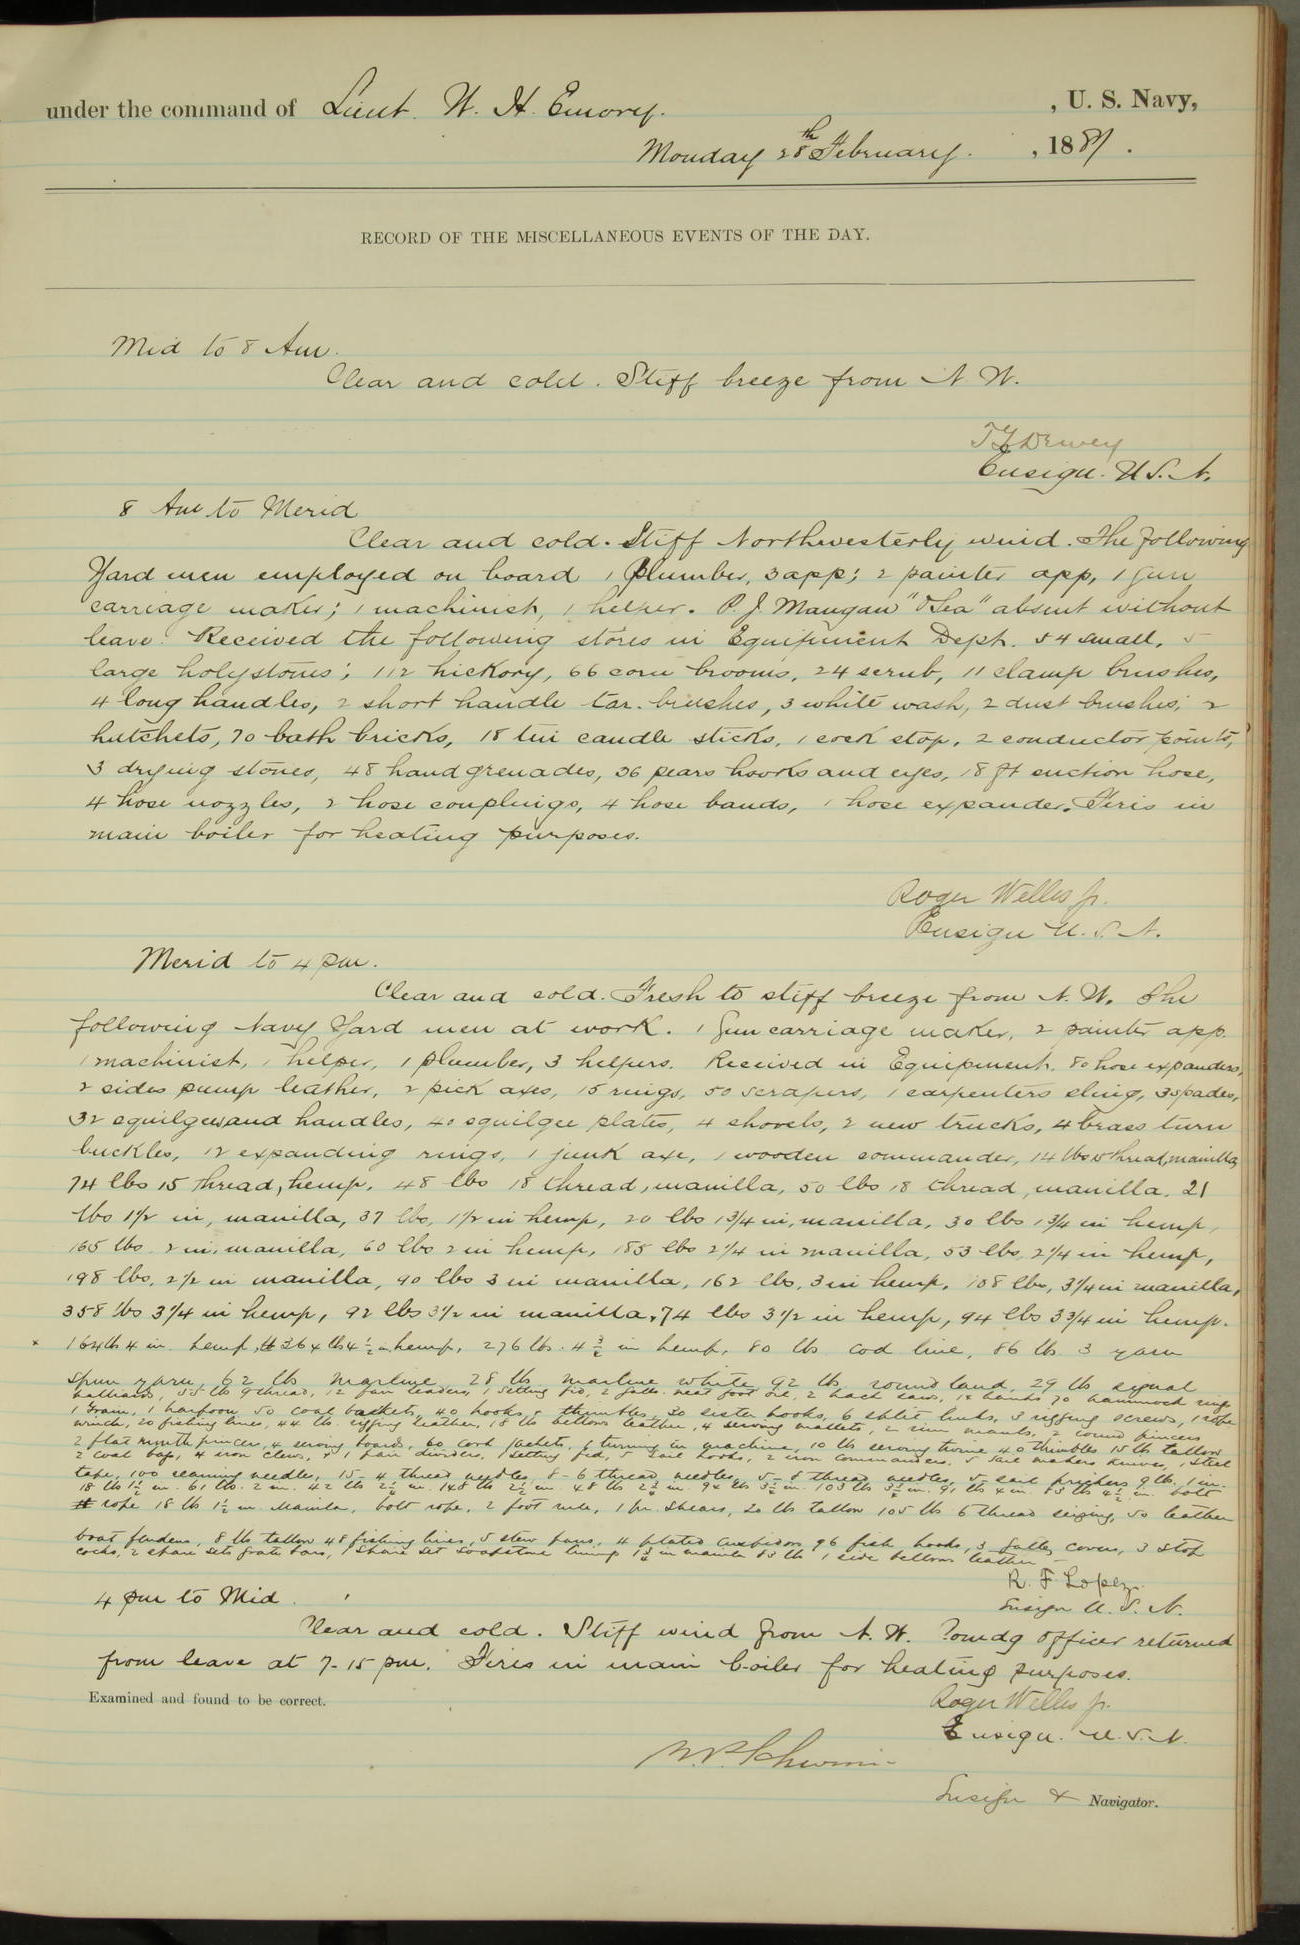 under the command of Lieut. W. H. Emory. , U. S. Navy,
Monday 28th February. , 1887.
RECORD OF THE MISCELLANEOUS EVENTS OF THE DAY.
Mid to 8 Am.
Clear and cold. Stiff breeze from N. W.
Dewey
Ensign. U. S. N.
8 Am to Merid
Clear and cold. Stiff Northwesterly wind. The following
Yard men employed on board 1 Plumber, 3 app; 2 painter app, 1 gun
carriage maker; 1 machinist, 1 helper. P. J. Mangan "OSea" absent without
leave. Received the following stores in Equipment Dept. 54 small, 5
large holystones; 112 hickory, 66 corn brooms, 24 scrub, 11 clamp brushes,
4 long handles, 2 short handle tar brushes, 3 white wash, 2 dust brushes, 2
hatchets, 70 bath bricks, 18 tin candle sticks, 1 cock stop, 2 conductor points,
3 drying stoves, 48 hand grenades, 36 pears hooks and eyes, 18 ft suction hose,
4 hose nozzles, 2 hose couplings, 4 hose bands, 1 hose expander. Fires in
main boiler for heating purposes.
Roger Welles Jr.
Ensign U. S. N.
Merid to 4 pm.
Clear and cold. Fresh to stiff breeze from N. W. The
following Navy Yard men at work. 1 Gun carriage maker, 2 painter app.
1 machinist, 1 helper, 1 plumber, 3 helpers. Received in Equipment. 80 hose expanders,
2 sides pump leather, 2 pick axes, 15 rings, 50 scrapers, 1 carpenters sling, 3 spades,
32 squilgees and handles, 40 squilgee plates, 4 shovels, 2 new trucks, 4 brass turn
buckles, 12 expanding rings, 1 junk axe, 1 wooden commander, 14 lbs 15 thread, manilla,
74 lbs 15 thread, hemp, 48 lbs 18 thread, manilla, 50 lbs 18 thread, manilla. 21
lbs 1½ in, manilla, 37 lbs, 1½ in hemp, 20 lbs 1¾ in, manilla, 30 lbs 1¾ in hemp,
165 lbs 2 in, manilla, 60 lbs 2 in hemp, 185 lbs 2¼ in manilla, 53 lbs, 2¼ in hemp,
198 lbs, 2½ in manilla, 40 lbs 3 in manilla, 162 lbs, 3 in hemp, 108 lbs, 3¼ in manilla,
358 lbs 3¼ in hemp, 92 lbs 3½ in manilla, 74 lbs 3½ in hemp, 94 lbs 3¾ in hemp.
164 lb 4 in. hemp, 264 lb 4½ in hemp, 276 lbs. 4 in hemp, 80 lbs cod line, 86 lb 3 yarn
spun yarn, 62 lbs marline, 28 lb marline white, 92 lb. round land, 29 lb signal
halliards, 55 lb 9 thread, 12 fair leaders, 1 setting fid, 2 galls. neat foot oil, 2 hack saws, 12 hanks 70 hammock rings
1 Grain, 1 harpoon 50 coal baskets, 40 hooks & thimbles, 30 sister hooks, 6 split links, 3 rigging screws, 1 rope
winch, 20 fishing lines, 44 lb. rigging leather, 18 lb bellows leather, 4 serving mallets, 2 round pincers
2 flat mouth pincer, 4 serving boards, 60 cork jackets, 1 turning in machine, 10 lb serving twine 40 thimbles 15 lb tallow
2 coal bags, 4 iron clews, 1 pair dividers, 1 setting fid, 5 sail hooks, 2 iron commanders, 5 sail makers knives, 1 steel
tape, 100 seaming needles, 15-4 thread needles, 8-6 thread needles, 5-8 thread needles, 5 sail prickers 9 lb. 1 in.
18 lb 1½ in. 61 lb. 2 in. 42 lb 2½ in. 148 lb in. 48 lb in. 94 lb in. 103 lb in. 91 lb 4 in. 83 lb 4½ in. bolt
rope 18 lb 1½ in Manila, bolt rope, 2 foot rule, 1 pr. shears, 20 lb tallow 105 lb 6 thread seizing, 50 leather
boat fenders, 8 lb tallow 48 fishing lines, 5 stew pans, 4 plated cuspidors 96 fish hooks, 3 galley covers, 3 stop
cocks, 2 spare sets grate bars, 1 spare set soapstone lining in manila 83 lb 1 side bellows leather
R. F. Lopez.
Ensign U. S. N.
4 pm to Mid.
Clear and cold. Stiff wind from N. W. Comdg Officer returned
from leave at 7-15 pm. Fires in main boiler for heating purposes.
Roger Welles Jr.
Ensign. U. S. N.
Examined and found to be correct.
Ensign & Navigator.